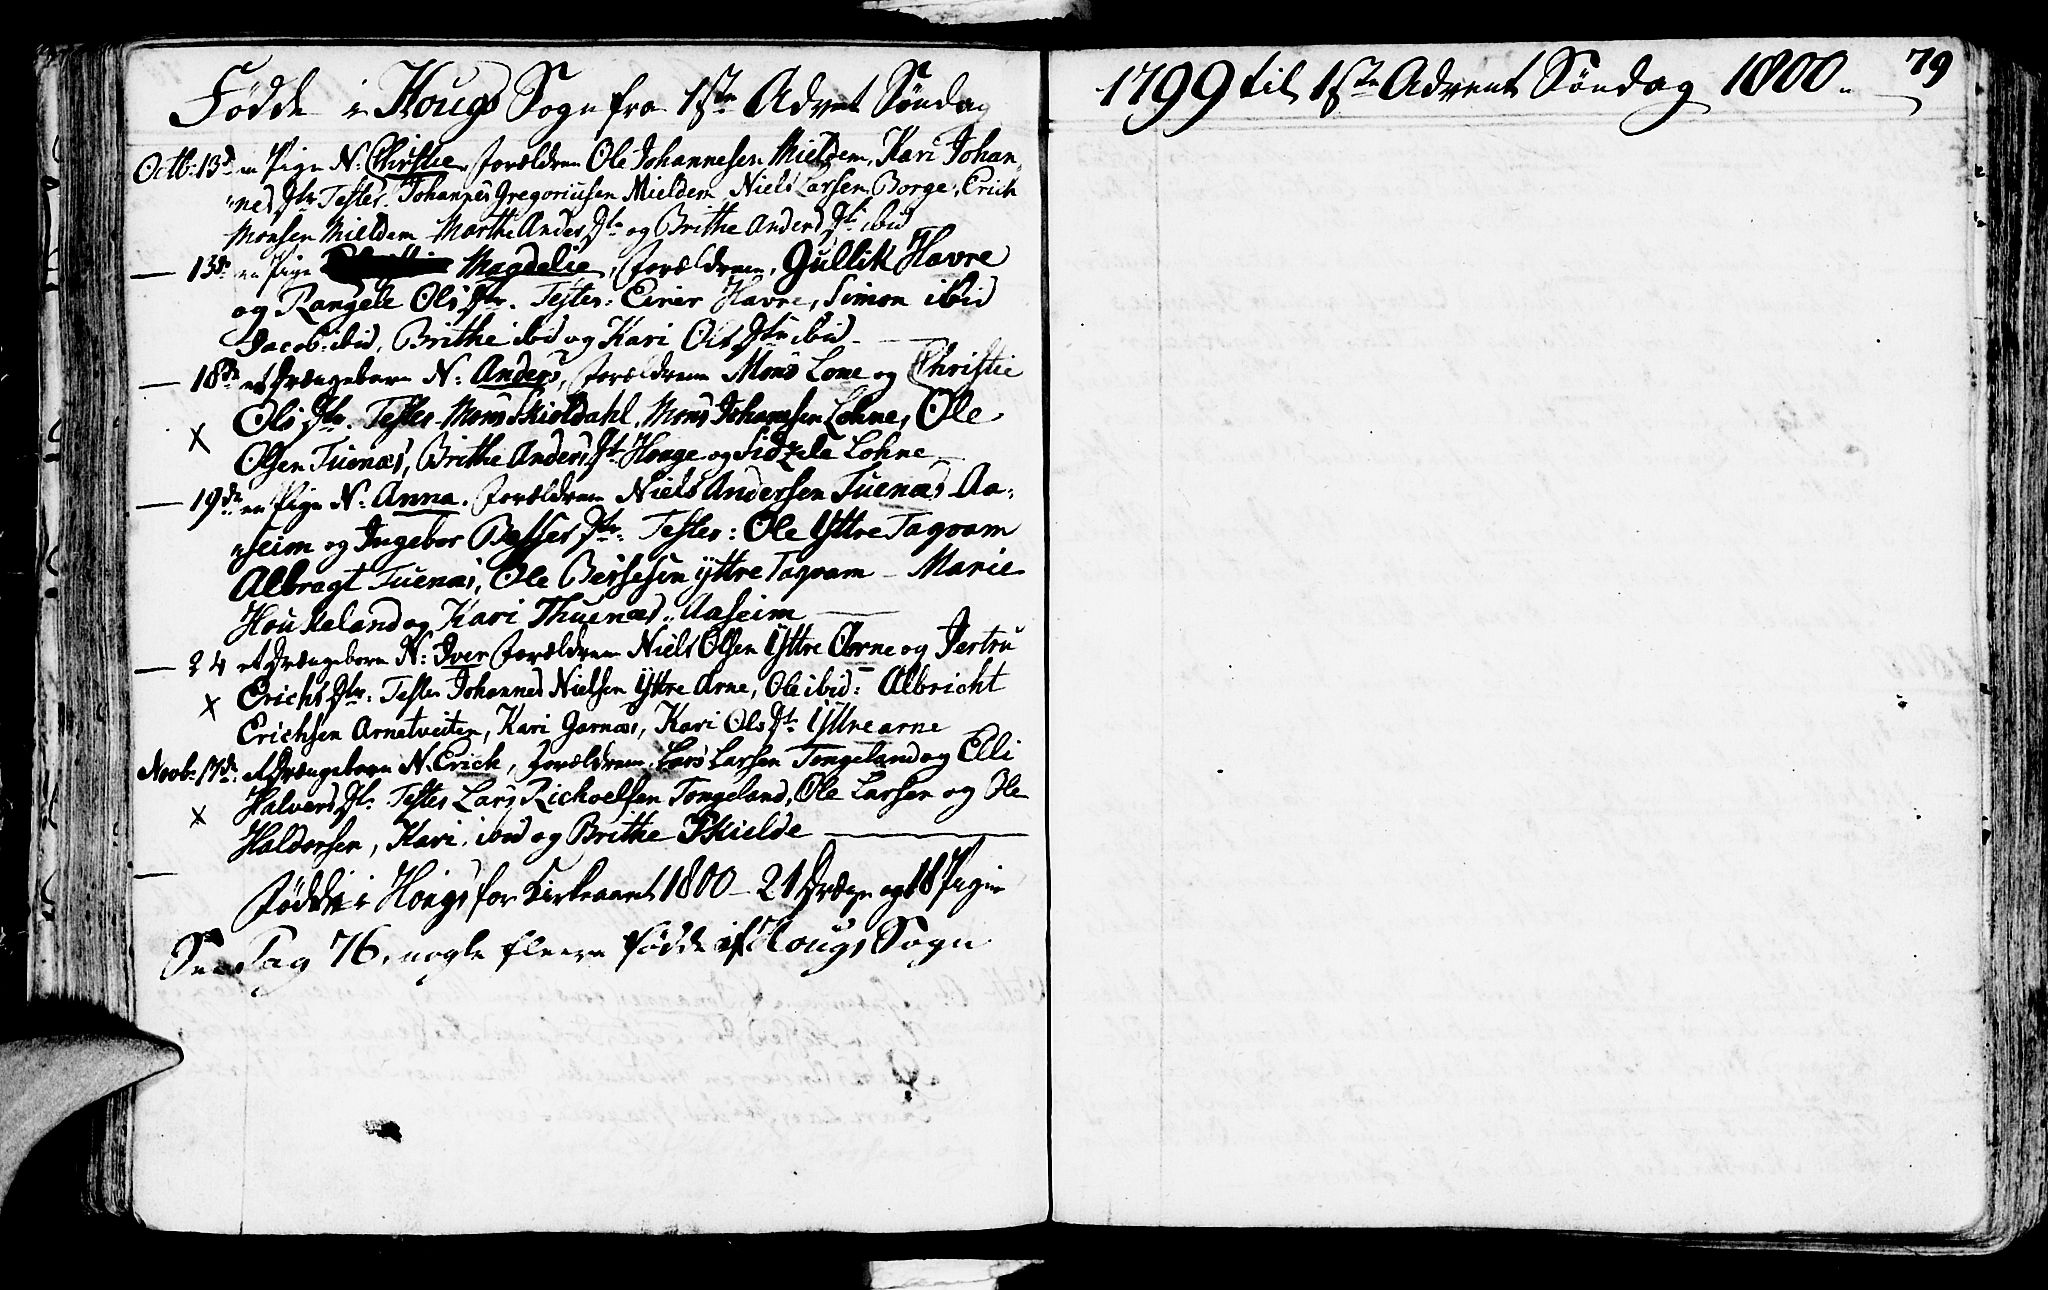 Fødde i Hougs Sogn fra 1ste Advet Søndag
Octb: 13d en Pige N: Christie, Forældrene Ole Johannesen Mieldem, Kari Johan„
„nes Dtr Testes. Johannes Gregoriusen Mieldem, Niels Larsen Borge, Erich
Monsen Mieldem Marthe Anders Dtr og Brithe Anders Dtr ibid
— 13de en Pige Magdelie, Forældrene, Gullik Havre
og Rangele Ols Dtr. Testes: Einer Havre, Simon ibid
Jacob ibid, Brithe ibid og Kari Ols Dtr ibid —
— 18de et Drængebarn N: Anders, Forældrene Mons Lone og Christie
Ols Dtr. Testes Mons Skioldahl, Mons Johannsen Lohne, Ole
X Olsen Tuenæs, Brithe Anders Dt Houge og Sidzela Lohne
— 19de en Pige N: Anna. Forældrene Niels Andersen Tuenæs Aa„
„seim og Ingebor Besses Dtr: Testes: Ole Yttre Taqvam
Albragt Tuenæs, Ole Bersesen yttre Taqvam — Marie
Houkeland og Kari Thuenæs „ Aaseim —
— 24 et Drængebarn N: Iver Forældrene Niels Olsen Yttre Arne og Jertru
X Erichs Dtr: Testes Johannes Nielsen Yttre Arne, Ole ibid: Albricht
Erichsen Arnetveiten, Kari Garnæs, Kari Ols Dt Yttre arne
Novb: 17de: et Drængebarn N. Erich, Forældrene, Lars Larsen Tongeland og Elli
X Halvers Dtr. Testes Lars Richoelsen Tongeland, Ole Larsen og Ole
Haldorsen, Kari ibid og Brithe Skielde —
Fødde i Hougs for Kirkeaaret 1800 — 21 Dræge og 18 Piger
See Pag 76, nogle fleere fødde if Hougs Sogn
1799 til 1ste Advent Søndag 1800. 79